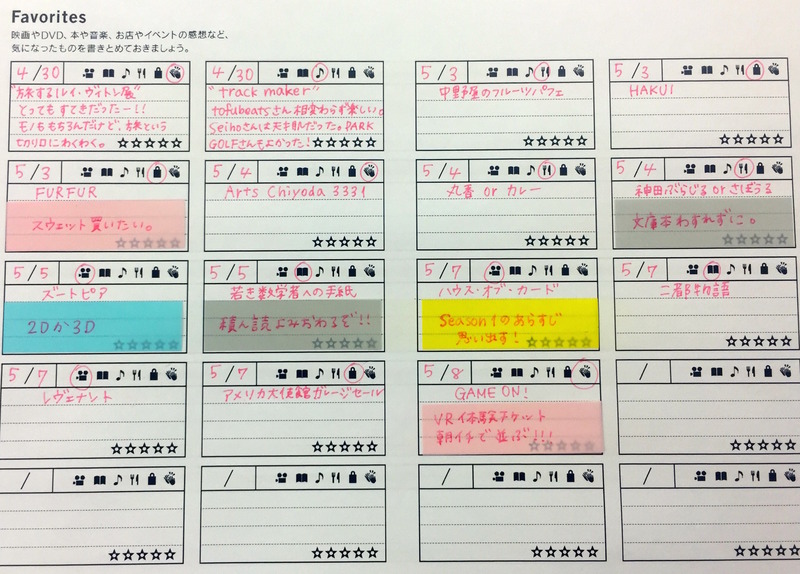 Favorites
映画やDVD、本や音楽、お店やイベントの感想など、
気になったものを書きとめておきましょう。
4/30
"旅するルイ・ヴィトン展"
とってもすてきだったー!!
モノももちろんだけど、旅という
切り口にわくわく。
4/30
"track maker"
tofubeatsさん相変わらず楽しい。
Seihoさんは天才肌だった。PARK
GOLFさんもよかった!
5/3
中野屋のフルーツパフェ
5/3
HAKUI
5/3
FURFUR
スウェット買いたい。
5/4
Arts Chiyoda 3331
5/4
丸香 or カレー
5/4
神田ぶらじる or さぼうる
文庫本わすれずに。
5/5
ズートピア
2Dか3D
5/5
若き数学者への手紙
積ん読よみおわるぞ!!
5/7
ハウス・オブ・カード
Season1のあらすじ
思い出す!
5/7
二都物語
5/7
レヴェナント
5/7
アメリカ大使館ガレージセール
5/8
GAME ON!
VR体験チケット
朝イチで並ぶ!!!
/
/
/
/
/